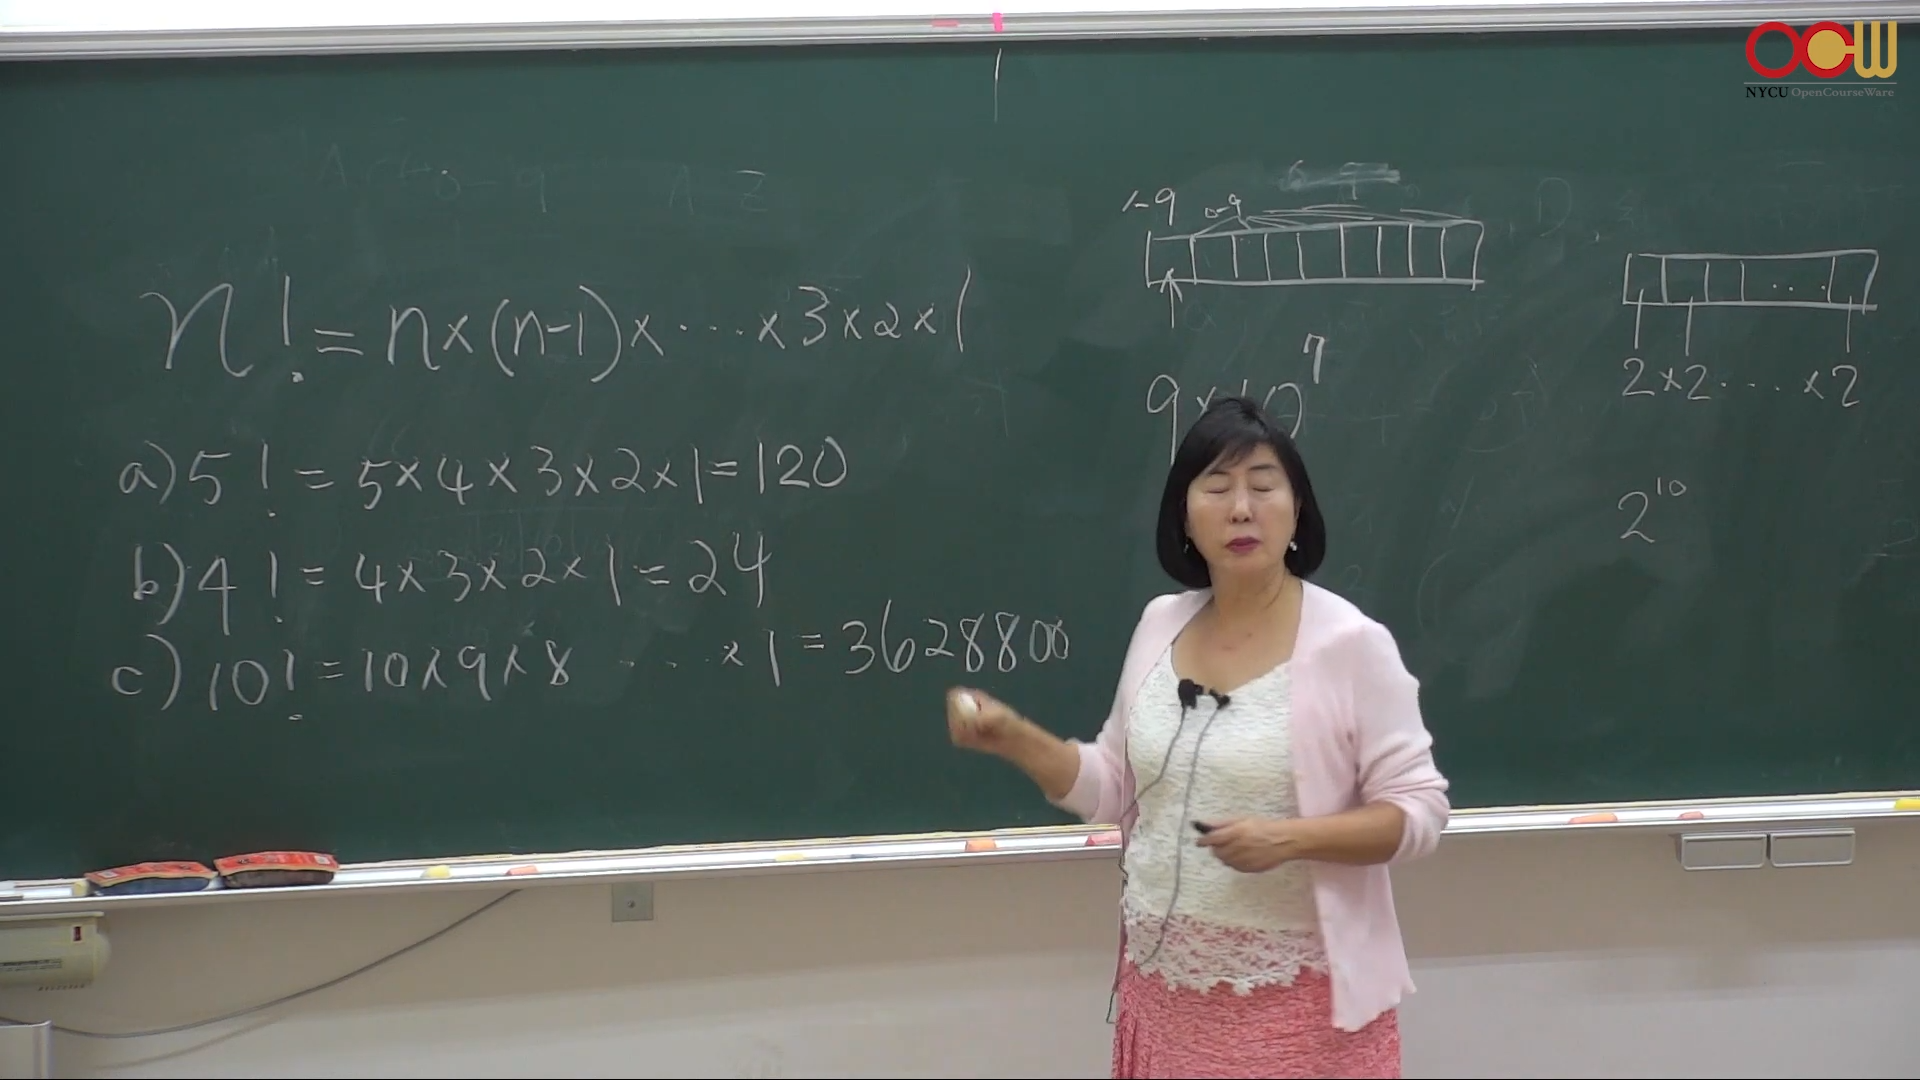 OCW
NYCU OpenCourseWare
n! = n×(n-1)× ··· ×3×2×1
a) 5! = 5×4×3×2×1 = 120
b) 4! = 4×3×2×1 = 24
c) 10! = 10×9×8 ··· ×1 = 3628800
1-9 0-9
9×10⁷
··· 
2×2 ··· ×2
2¹⁰